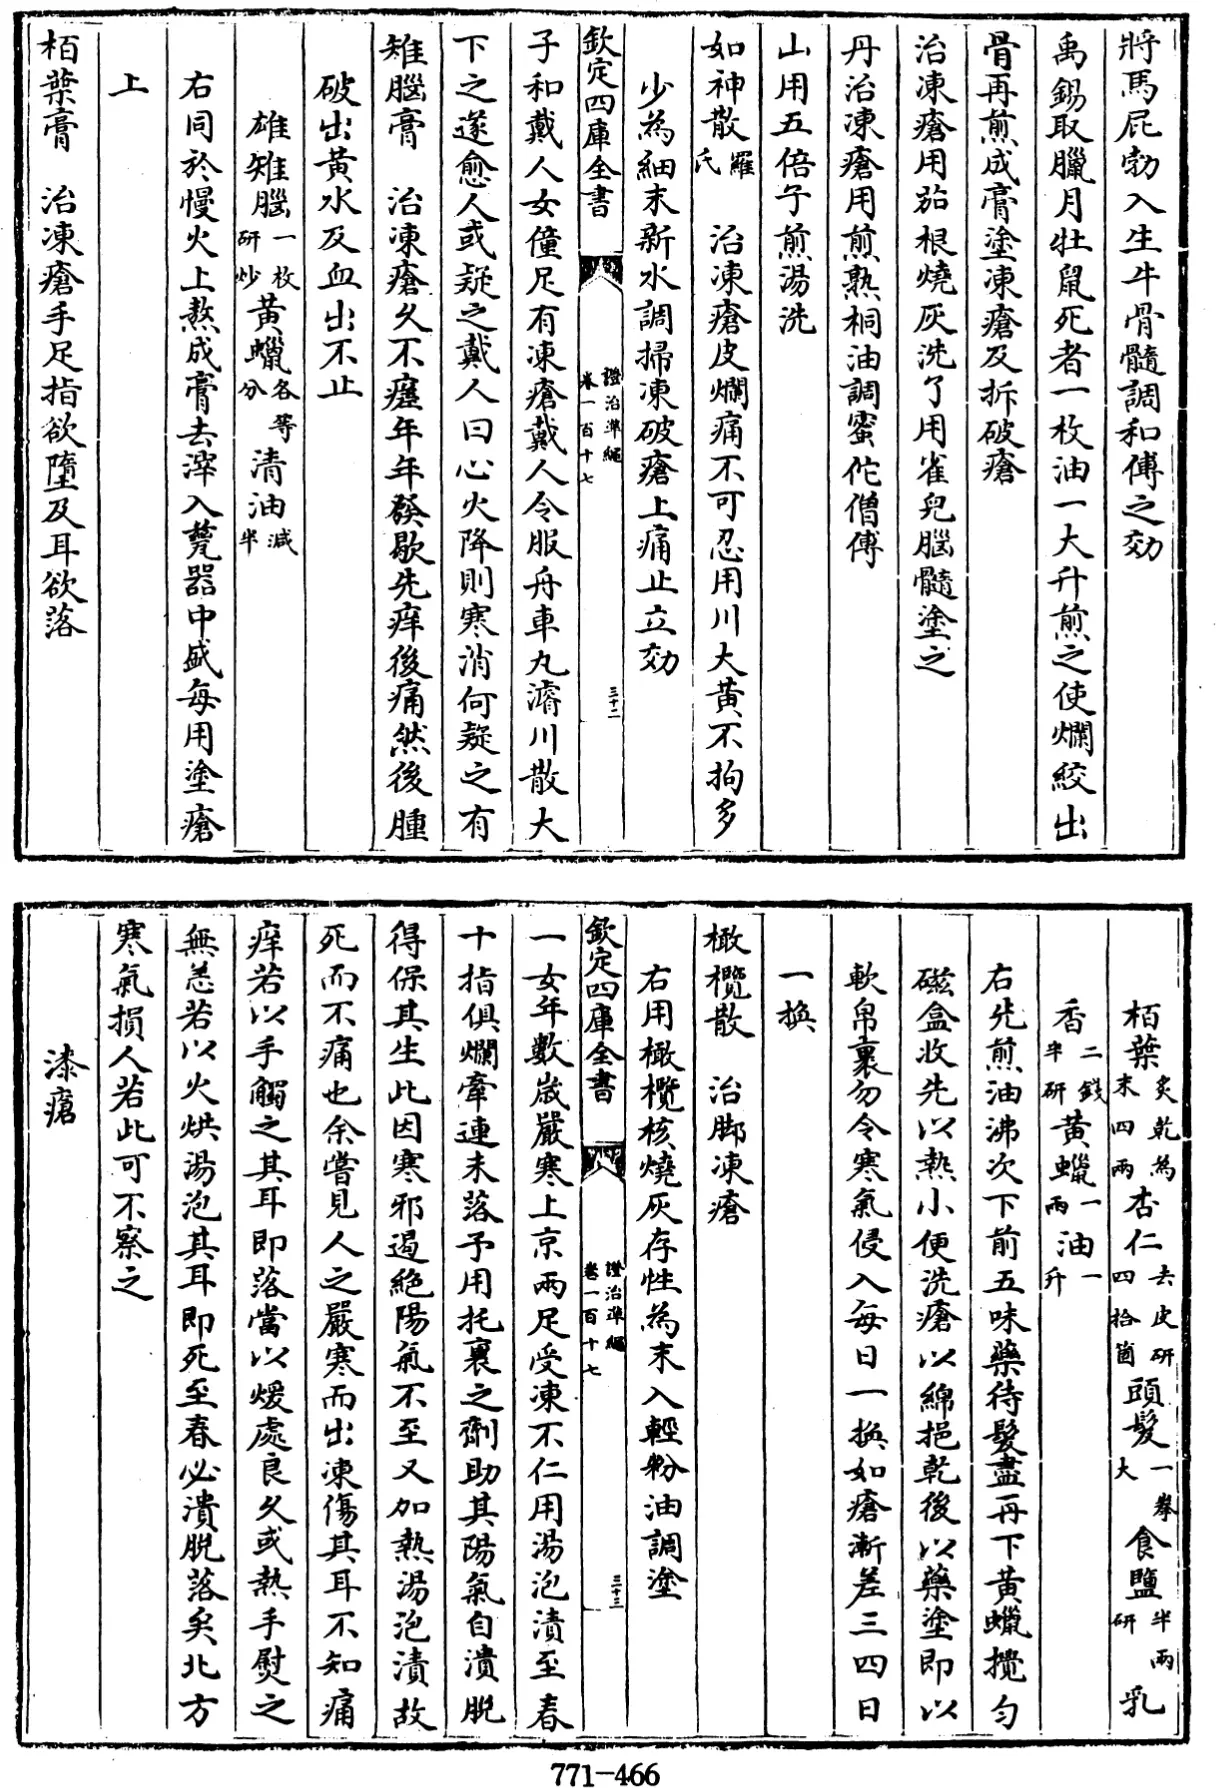 將馬屁勃入生牛骨髓調和傅之効
禹錫取臘月牡鼠死者一枚油一大升煎之使爛絞出
骨再煎成膏塗凍瘡及拆破瘡
治凍瘡用茄根燒灰洗了用雀兒腦髓塗之
丹治凍瘡用煎熟桐油調蜜佗僧傅
山用五倍子煎湯洗
如神散羅氏　治凍瘡皮爛痛不可忍用川大黄不拘多
少為細末新水調掃凍破瘡上痛止立効
欽定四庫全書　證治準繩卷一百十七　三十二
子和戴人女僮足有凍瘡戴人令服舟車丸濬川散大
下之遂愈人或疑之戴人曰心火降則寒消何疑之有
雉腦膏　治凍瘡久不瘥年年發歇先痒後痛然後腫
破出黄水及血出不止
雄雉腦一枚研炒黄蠟各等分清油減半
右同於慢火上熬成膏去滓入甆器中盛每用塗瘡
上
栢葉膏　治凍瘡手足指欲墮及耳欲落
栢葉炙乾為末四兩杏仁去皮研四拾箇頭髮一拳大食鹽半兩研乳
香二錢半研黄蠟一兩油一升
右先煎油沸次下前五味藥待髮盡再下黄蠟攪勻
磁盒收先以熱小便洗瘡以綿挹乾後以藥塗即以
軟帛裹勿令寒氣侵入每日一換如瘡漸差三四日
一換
橄欖散　治脚凍瘡
右用橄欖核燒灰存性為末入輕粉油調塗
欽定四庫全書　證治準繩卷一百十七　三十三
一女年數嵗嚴寒上京兩足受凍不仁用湯泡漬至春
十指俱爛牽連未落予用托裏之劑助其陽氣自潰脫
得保其生此因寒邪遏絶陽氣不至又加熱湯泡漬故
死而不痛也余嘗見人之嚴寒而出凍傷其耳不知痛
痒若以手觸之其耳即落當以煖處良久或熱手熨之
無恙若以火烘湯泡其耳即死至春必潰脫落矣北方
寒氣損人若此可不察之
漆瘡
771-466